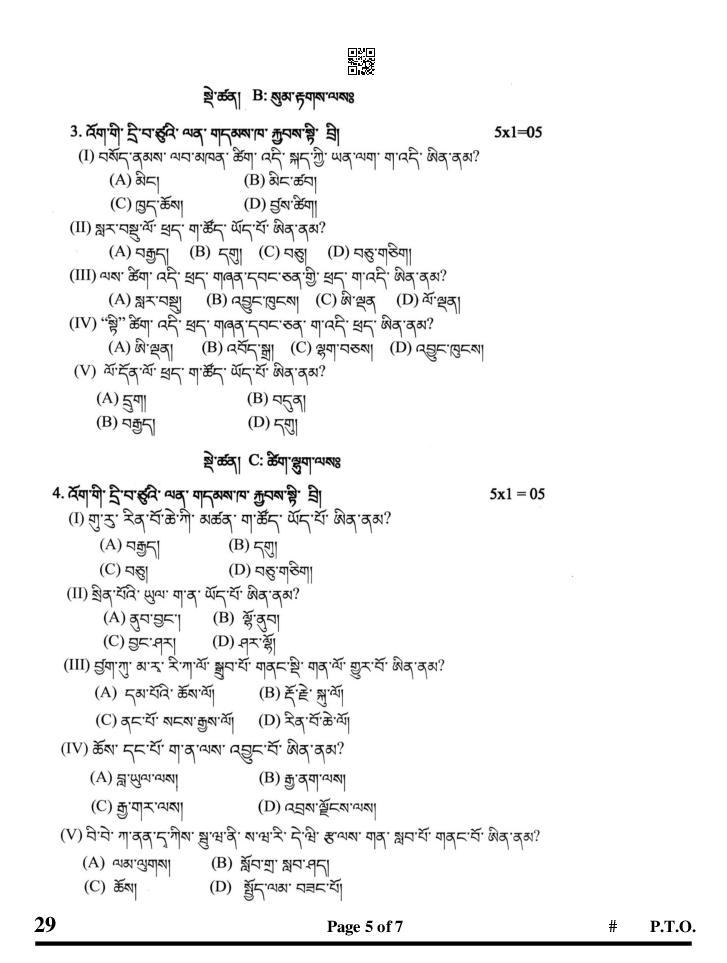 སྡེ་ཚན། B: སུམ་རྟགས་ལསཿ
3. འོག་གི་ དྲི་བ་ཙུའི་ ལན་ གདམས་ཁ་ རྐྱབས་སྟི་ བྲི། 5x1=05
(I) བསོད་ནམས་ ལབ་མཁན་ ཚིག་ འདི་ སྐད་ཀྱི་ ཡན་ལག་ ག་འདི་ ཨིན་ནམ?
(A) མིང༌། (B) མིང་ཚབ།
(C) ཁྱད་ཆོས། (D) བྱས་ཚིག།
(II) སླར་བསྡུ་ལོ་ ཕྲད་ ག་ཚོད་ ཡོད་པོ་ ཨིན་ནམ?
(A) བརྒྱད། (B) དགུ། (C) བཅུ། (D) བཅུ་གཅིག།
(III) ལས་ ཚིག་ འདི་ ཕྲད་ གཞན་དབང་ཅན་གྱི་ ཕྲད་ ག་འདི་ ཨིན་ནམ?
(A) སླར་བསྡུ། (B) འབྱུང་ཁུངས། (C) ཨི་ལྡན (D) ལོ་ལྡན།
(IV) “སྟི” ཚིག་ འདི་ ཕྲད་ གཞན་དབང་ཅན་ ག་འདི་ ཕྲད་ ཨིན་ནམ?
(A) ཨི་ལྡན། (B) འབོད་སྒྲ། (C) ལྷག་བཅས། (D) འབྱུང་ཁུངས།
(V) ལོ་དོན་ལོ་ ཕྲད་ ག་ཚོད་ ཡོད་པོ་ ཨིན་ནམ?
(A) དྲུག། (B) བདུན།
(B) བརྒྱད། (D) དགུ།
སྡེ་ཚན། C: ཚིག་ལྷུག་ལསཿ
4. འོག་གི་ དྲི་བ་ཙུའི་ ལན་ གདམས་ཁ་ རྐྱབས་སྟི་ བྲི། 5x1 = 05
(I) གུ་རུ་ རིན་པོ་ཆེ་ཀི་ མཚན་ ག་ཚོད་ ཡོད་པོ་ ཨིན་ནམ?
(A) བརྒྱད། (B) དགུ།
(C) བཅུ། (D) བཅུ་གཅིག།
(II) སྲིན་པོའི་ ཡུལ་ ག་ན་ ཡོད་པོ་ ཨིན་ནམ?
(A) ནུབ་བྱང་། (B) ལྷོ་ནུབ།
(C) བྱང་ཤར། (D) ཤར་ལྷོ།
(III) བྱག་ཀུ་ མ་ར་ རི་ཀ་ལོ་ སྒྲུབ་པོ་ གནང་སྡི་ གན་ལོ་ གྱུར་བོ་ ཨིན་ནམ?
(A) དམ་པོའི་ ཆོས་ལོ། (B) རྡོ་རྗེ་ སྐུ་ལོ།
(C) ནང་པོ་ སངས་རྒྱས་ལོ། (D) རིན་པོ་ཆེ་ལོ།
(IV) ཆོས་ དང་པོ་ ག་ན་ལས་ འབྱུང་བོ་ ཨིན་ནམ?
(A) བླ་ཡུལ་ལས། (B) རྒྱ་ནག་ལས།
(C) རྒྱ་གར་ལས། (D) འབྲས་ལྗོངས་ལས།
(V) བི་བེ་ ཀ་ནན་ད་ཀིས་ སྦྱ་ཕ་ནི་ ས་ཕ་རི་ དེ་ཕི་ རྩ་ལས་ གན་ སླབ་པོ་ གནང་པོ་ ཨིན་ནམ?
(A) ལམ་ལུགས། (B) སློབ་གྲྭ་ སླབ་ཤད།
(C) ཆོས། (D) སྤྱོད་ལམ་ བཟང་པོ།
29 Page 5 of 7 # P.T.O.